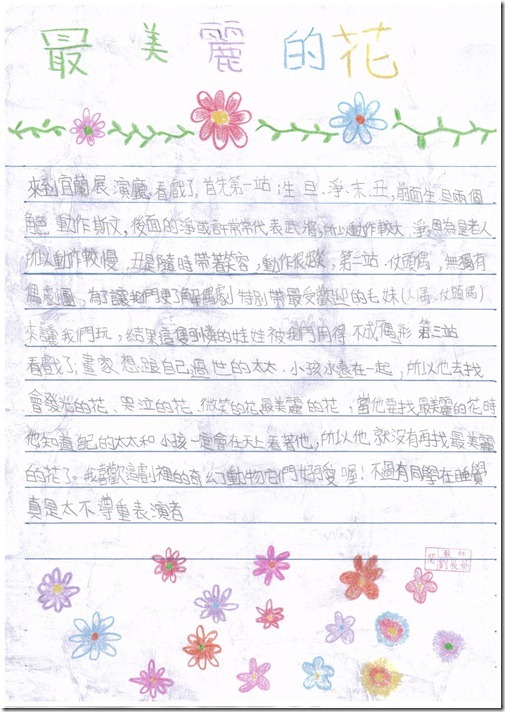 最美麗的花
來到宜蘭展演廳,看戲了,首先第一站:生、旦、淨、末、丑,前面生旦兩個
角色動作斯文,後面的淨常常代表武將,所以動作較大,淨,因為是老人
所以動作較慢,丑是隨時帶著笑容,動作很,第二站、仗頭偶,無獨有
偶劇團,為了讓我們更了解偶劇特別帶最受歡迎的毛妹(人偶、仗頭偶)
來讓我們玩,結果這隻可憐的娃娃被我們用得不成偶形第三站
看戲了;畫家想跟自己過世的太太、小孩永遠在一起,所以他去找
會發光的花、哭泣的花、微笑的花、最美麗的花,當他要找最美麗的花時
他知道自己的太太和小孩一定會在天上看著他,所以他就沒有再找最美麗
的花了。我喜歡這劇裡的奇幻動物它們好可愛喔!不過有同學在睡覺
真是太不尊重表演者